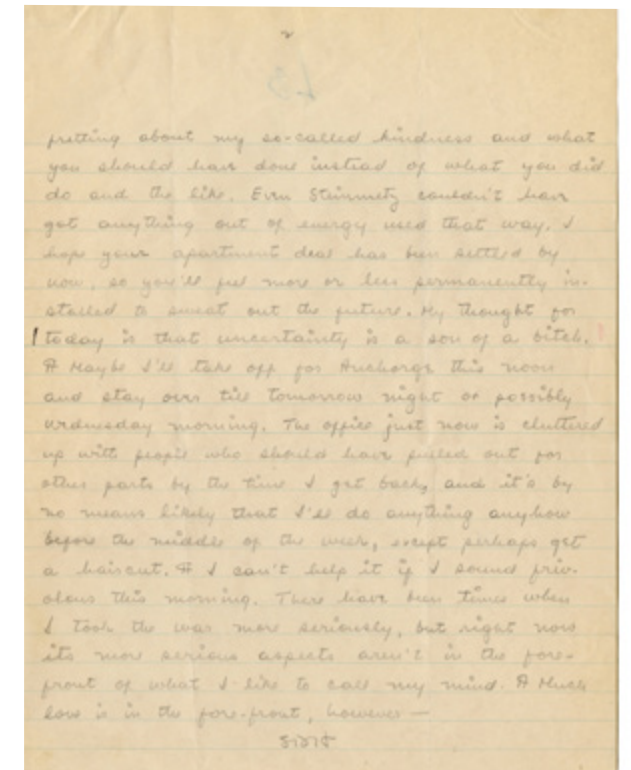 2
fretting about my so-called kindness and what
you should have done instead of what you did
do and the like. Even Steinmetz couldn't have
got anything out of energy used that way. I
hope your apartment deal has been settled by
now, so you'll feel more or less permanently in-
stalled to sweat out the future. My thought for
today is that uncertainty is a son of a bitch.
¶ Maybe I'll take off for Anchorage this noon
and stay over till tomorrow night or possibly
Wednesday morning. The office just now is cluttered
up with people who should have pulled out for
other parts by the time I get back, and it's by
no means likely that I'll do anything anyhow
before the middle of the week, except perhaps get
a haircut. ¶ I can't help it if I sound friv-
olous this morning. There have been times when
I took the war more seriously, but right now
its more serious aspects aren't in the fore-
front of what I like to call my mind. ¶ Much
love is in the fore-front, however —